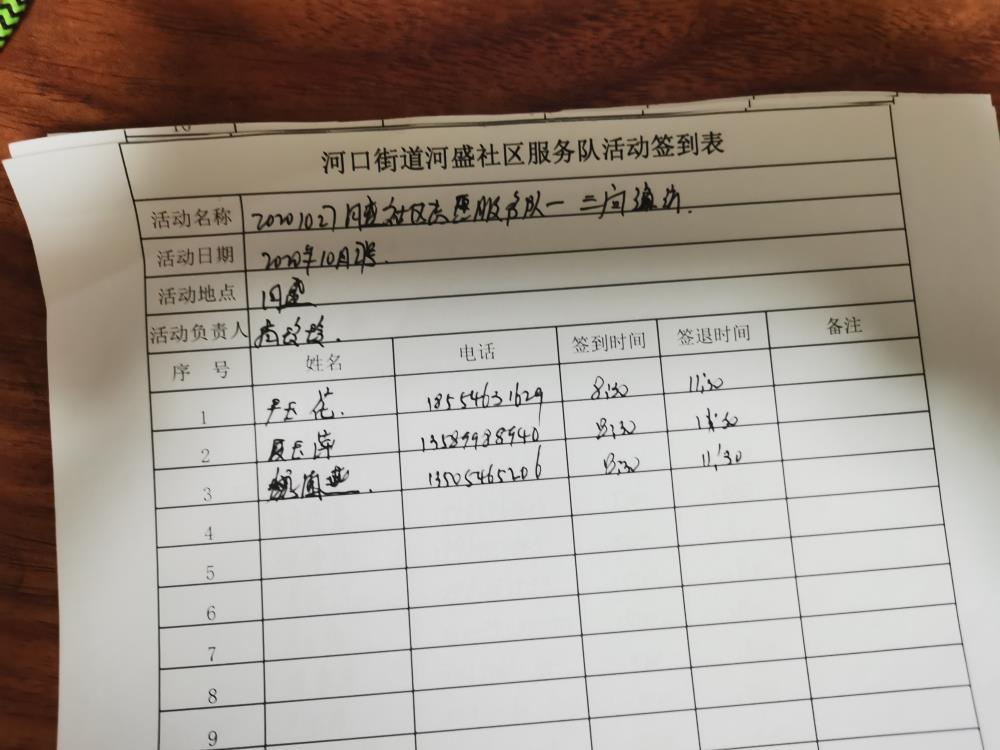 10
河口街道河盛社区服务队活动签到表
活动名称 20201027河盛社区志愿服务队一
活动日期 2020年10月
活动地点 河盛
活动负责人
序 号 姓名 电话 签到时间 签退时间 备注
1 18554631629 8:30 11:30
2 13589988940 8:30 11:30
3 13505465206 8:30 11:30
4
5
6
7
8
9